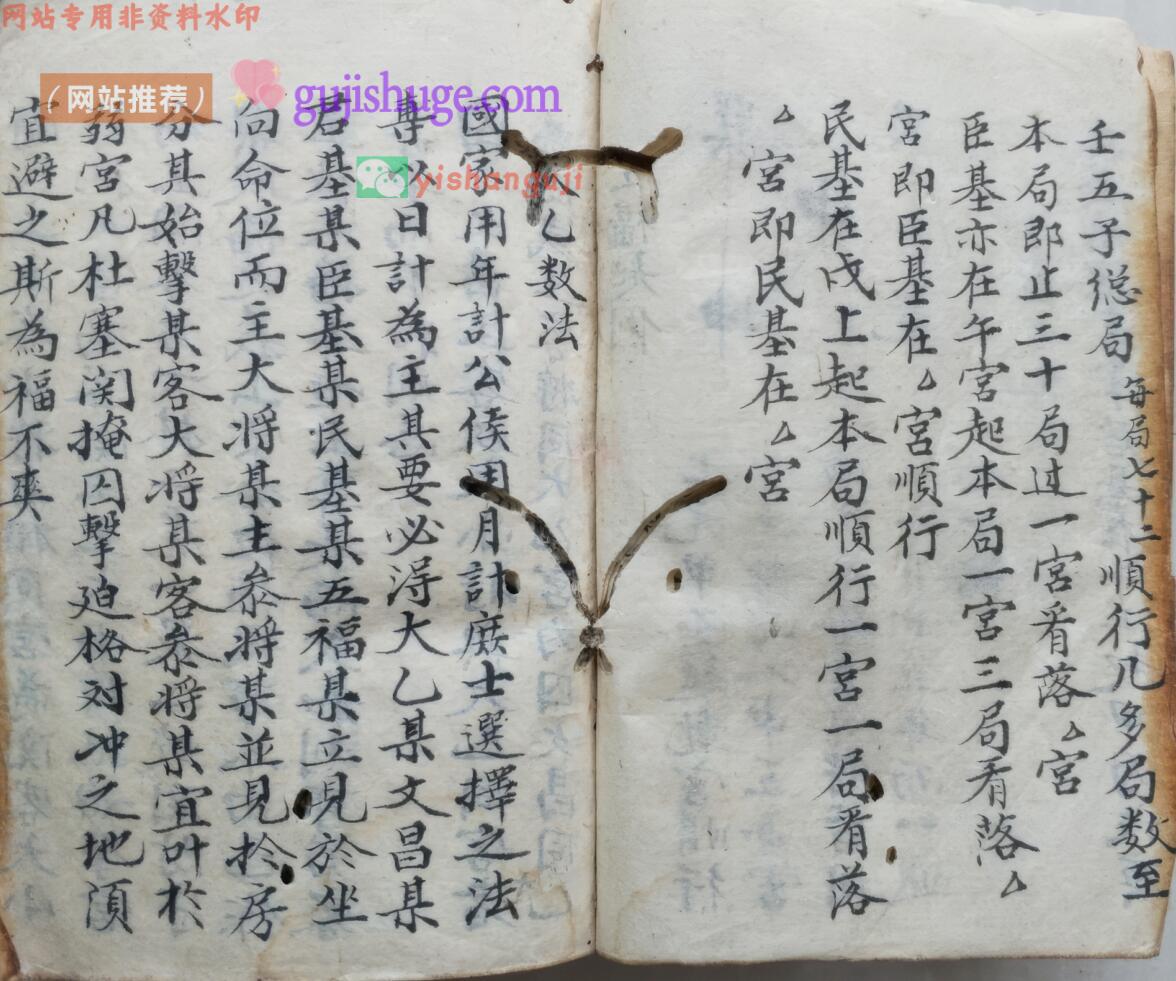 网站专用非资料水印
（网站推荐）
gujishuge.com
yishanguji
壬五子総局每局七十二順行几多局数至
本局即止三十局过一宮看落厶宮
臣基亦在午宮起本局一宮三局看落厶
宮即臣基在厶宮順行
民基在戌上起本局順行一宮一局看落
厶宮即民基在厶宮
乙数法
國家用年計公侯用月計庶士選擇之法
專以日計為主其要必淂大乙某文昌某
君基某臣基某民基某五福某立見於坐
向命位而主大将某主叅将某並見扵房
分其始擊某客大将某客叅将某宜叶扵
弱宮凡杜塞関掩囚擊廹格対冲之地湏
宜避之斯為福不爽